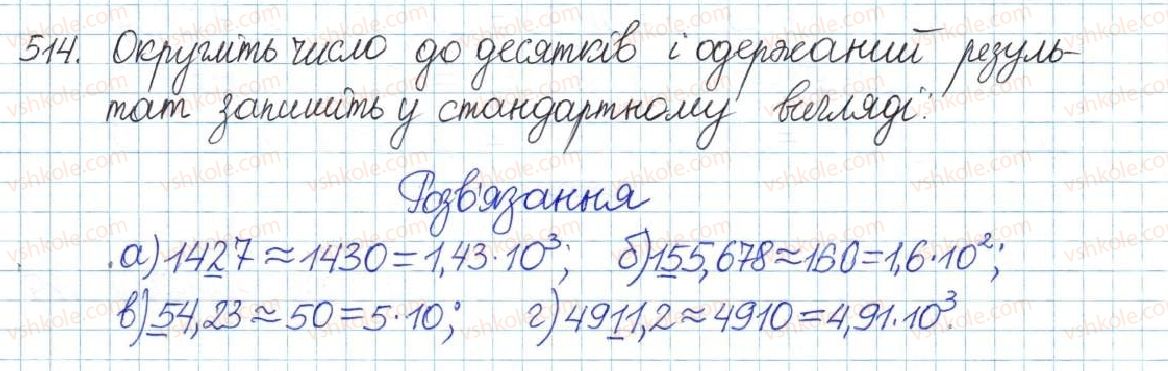 514. Округліть число до десятків і одержаний резуль-
тат запишіть у стандартному вигляді:
Розв'язання
а) 1427 ≈ 1430 = 1,43·10³; б) 155,678 ≈ 160 = 1,6·10²;
в) 54,23 ≈ 50 = 5·10; г) 4911,2 ≈ 4910 = 4,91·10³.
vshkole.com